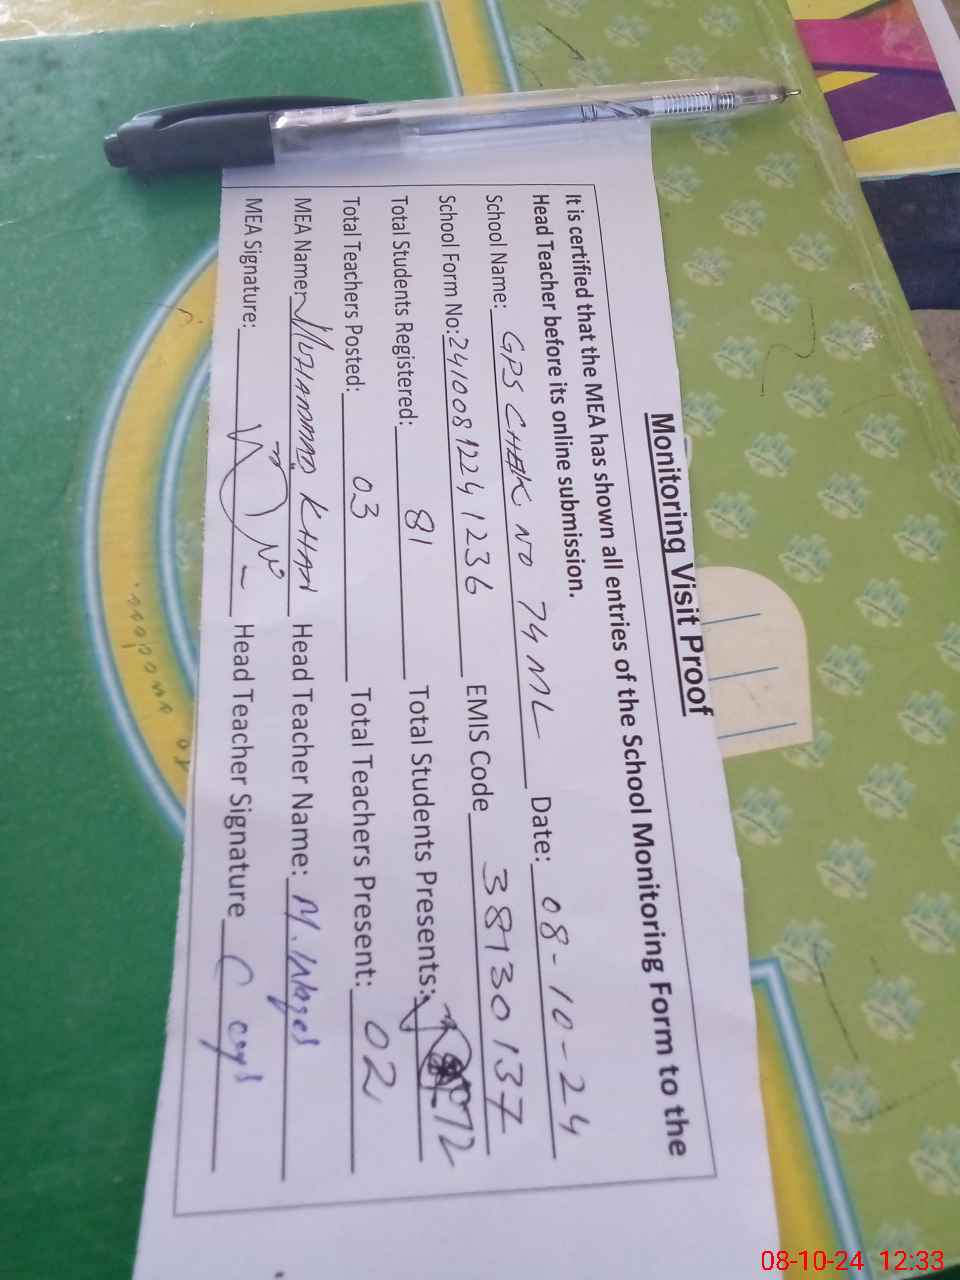 Monitoring Visit Proof
It is certified that the MEA has shown all entries of the School Monitoring Form to the
Head Teacher before its online submission.
School Name: GPS CHAK NO 74 ML Date: 08-10-24
School Form No: 2410081224 1236 EMIS Code 38130137
Total Students Registered: 81 Total Students Presents: 72
Total Teachers Posted: 03 Total Teachers Present: 02
MEA Name: MUHAMMAD KHAN Head Teacher Name: M.
MEA Signature: Head Teacher Signature
08-10-24 12:33